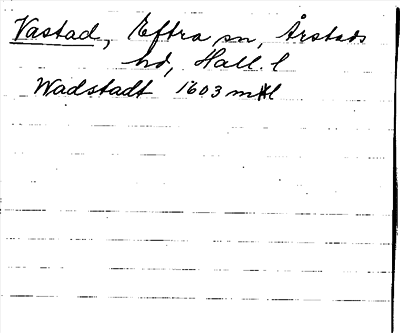 Vastad, Eftra sn, Årstads
hd, Hall. l
Wadstadt 1603 mtl